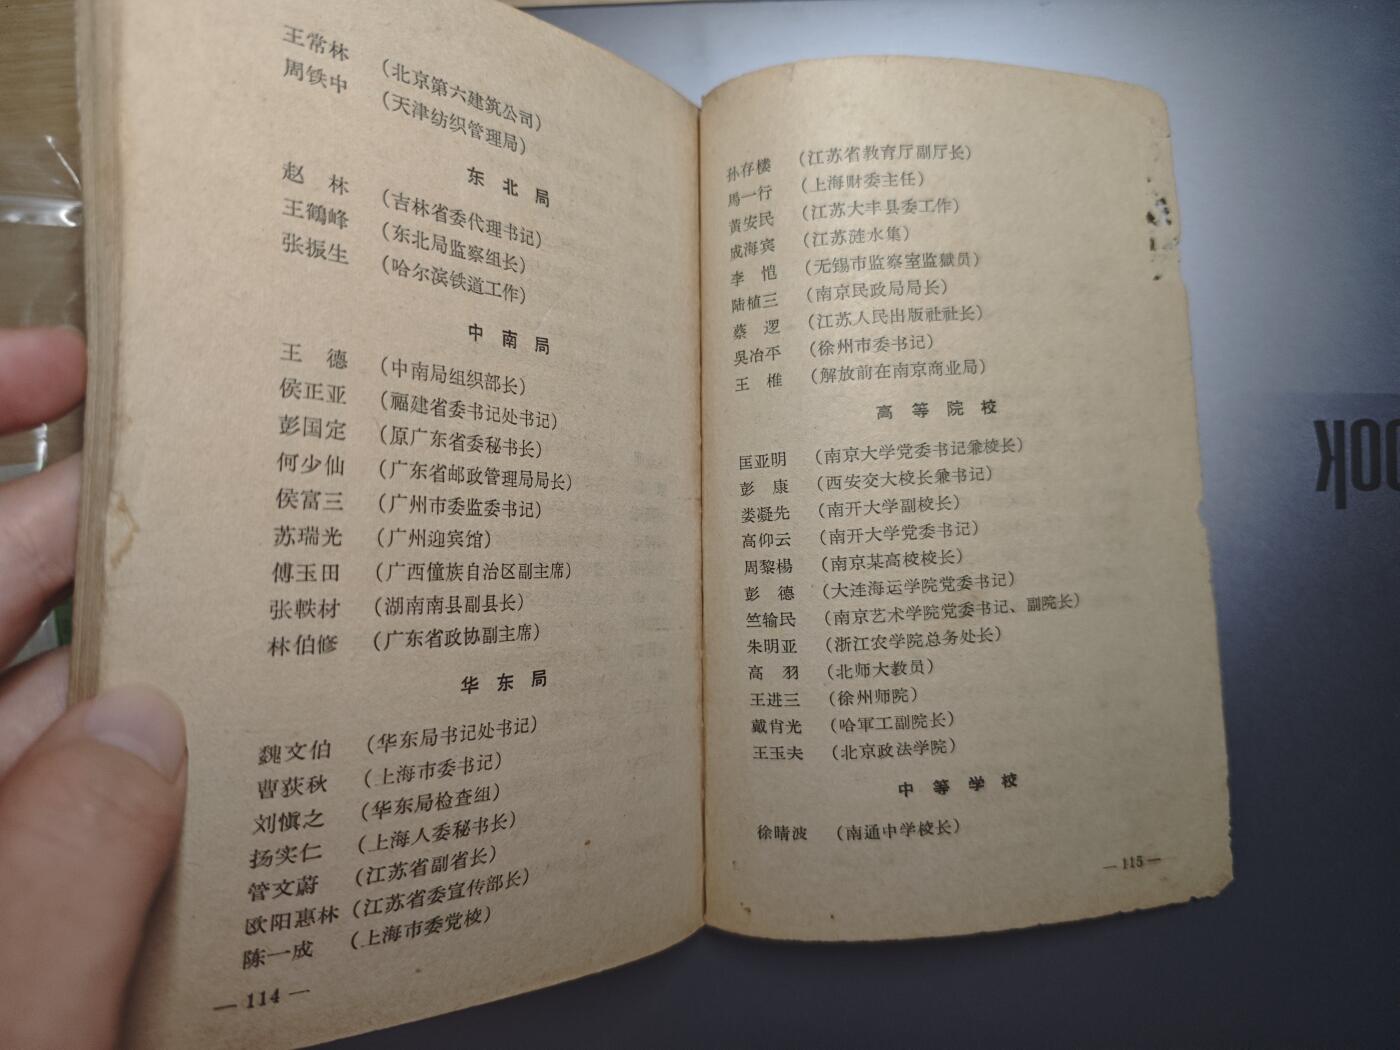 王常林 (北京第六建筑公司)
周铁中 (天津纺织管理局)
东北局
赵 林 (吉林省委代理书记)
王鶴峰 (东北局监察组长)
张振生 (哈尔滨铁道工作)
中南局
王 德 (中南局组织部长)
侯正亚 (福建省委书记处书记)
彭国定 (原广东省委秘书长)
何少仙 (广东省邮政管理局局长)
侯富三 (广州市委监委书记)
苏瑞光 (广州迎宾馆)
傅玉田 (广西僮族自治区副主席)
张軼材 (湖南南县副县长)
林伯修 (广东省政协副主席)
华东局
魏文伯 (华东局书记处书记)
曹荻秋 (上海市委书记)
刘愼之 (华东局检查组)
扬实仁 (上海人委秘书长)
管文蔚 (江苏省副省长)
欧阳惠林 (江苏省委宣传部长)
陈一成 (上海市委党校)
—114—
孙存楼 (江苏省教育厅副厅长)
馬一行 (上海财委主任)
黄安民 (江苏大丰县委工作)
成海宾 (江苏涟水集)
李 恺 (无锡市监察室监獄员)
陆植三 (南京民政局局长)
蔡 逻 (江苏人民出版社社长)
吳冶平 (徐州市委书记)
王 椎 (解放前在南京商业局)
高等院校
匡亚明 (南京大学党委书记兼校长)
彭 康 (西安交大校长兼书记)
娄凝先 (南开大学副校长)
高仰云 (南开大学党委书记)
周黎楊 (南京某高校校长)
彭 德 (大连海运学院党委书记)
竺输民 (南京艺术学院党委书记、副院长)
朱明亚 (浙江农学院总务处长)
高 羽 (北师大教员)
王进三 (徐州师院)
戴肖光 (哈軍工副院长)
王玉夫 (北京政法学院)
中等学校
徐晴波 (南通中学校长)
—115—